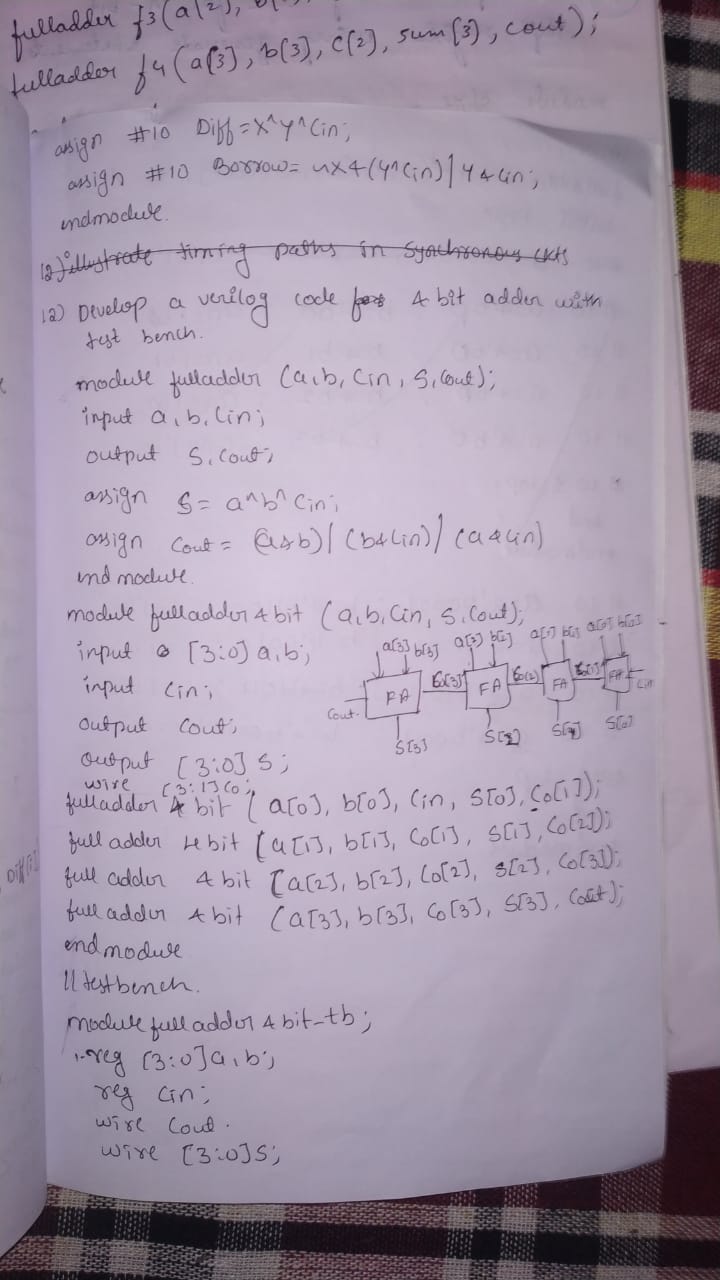 fulladder f3(a[2],
fulladder f4 (a[3], b[3], c[2], sum[3], cout);
assign #10 Diff = x^y^Cin;
assign #10 Borrow = ~x&(y^Cin)|y&Cin;
endmodule.
12) illustrate timing paths in synchronous ckts
12) Develop a verilog code for 4 bit adder with
test bench.
module fulladder (a,b, Cin, S, Cout);
input a, b, Cin;
output S, Cout;
assign S = a^b^Cin;
assign Cout = (a&b)|(b&Cin)|(a&Cin)
endmodule.
module fulladder 4bit (a,b,Cin, S, Cout);
input [3:0] a,b;
input Cin;
output Cout;
output [3:0] S;
wire [3:1] Co;
a[3] b[3] a[2] b[2] a[1] b[1] a[0] b[0]
Cout FA Co[3] FA Co[2] FA Co[1] FA Cin
S[3] S[2] S[1] S[0]
fulladder 4 bit (a[0], b[0], Cin, S[0], Co[1]);
full adder 4 bit (a[1], b[1], Co[1], S[1], Co[2]);
full adder 4 bit (a[2], b[2], Co[2], S[2], Co[3]);
full adder 4 bit (a[3], b[3], Co[3], S[3], Cout);
endmodule
// testbench.
module full adder 4 bit_tb;
reg [3:0] a,b;
reg Cin;
wire Cout.
wire [3:0] S;
Diff[